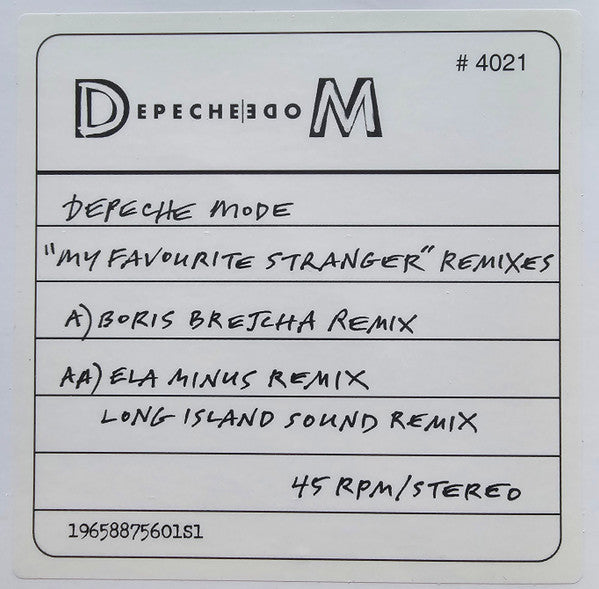 # 4021
DEPECHE|EDOM
DEPECHE MODE
"MY FAVOURITE STRANGER" REMIXES
A) BORIS BREJCHA REMIX
AA) ELA MINUS REMIX
LONG ISLAND SOUND REMIX
45 RPM/STEREO
19658875601S1